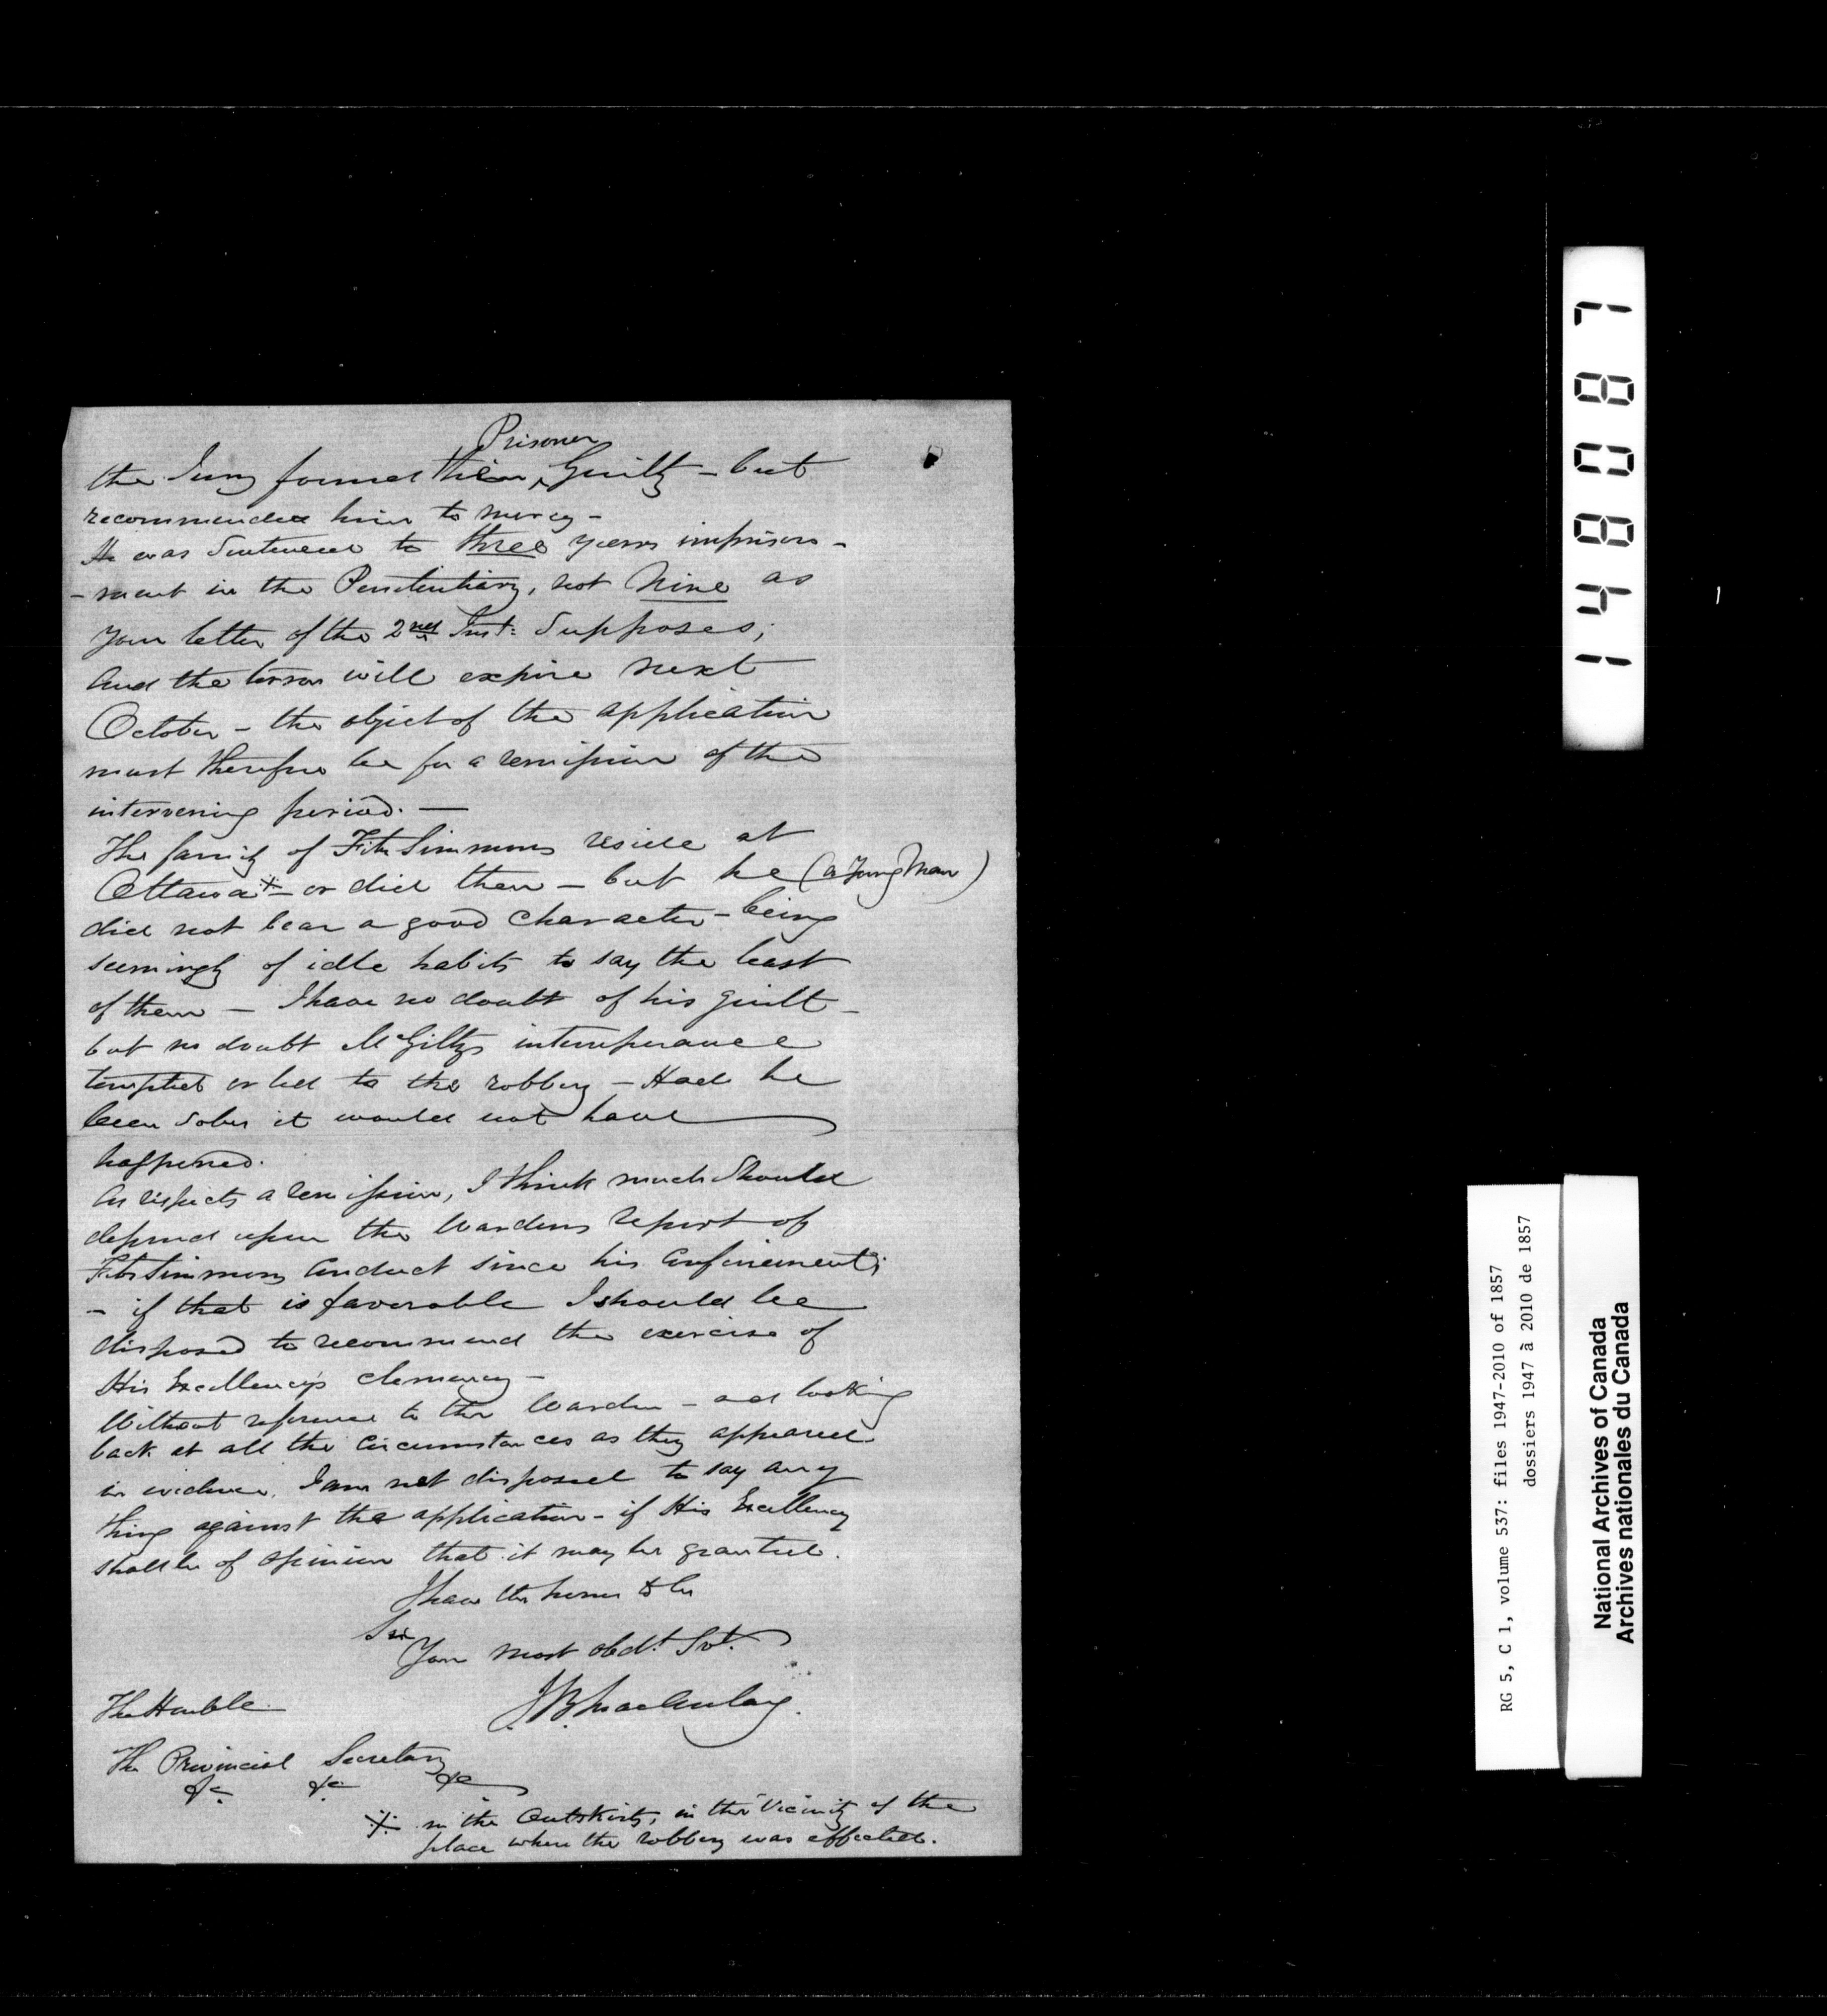 Prisoner
the Jury found the ‸ Guilty – but
recommended him to mercy –
He was Sentenced to three years imprison-
- ment in the Penitentiary, not Nine as
Your letter of the 2nd Inst: Supposes;
And the term will expire next
October – the object of the application
must therefore be for a remission of the
intervening period. —
The family of FitzSimmons reside at
Ottawa※ – or did then – but he (a Young Man)
did not bear a good Character – being
seemingly of idle habits to say the least
of them — I have no doubt of his guilt –
but no doubt McGiltys intemperance
tempted or led to the robbery – Had he
been Sober it would not have
happened.
As respects a remission, I think much Should
depend upon the Wardens report of
FitzSimmons Conduct since his Confinement;
– if that is favorable I should be
disposed to recommend the exercise of
His Excellency's clemency –
Without reference to the Warden – and looking
back at all the Circumstances as they appeared
in evidence, I am not disposed to say any
thing against the application – if His Excellency
shall be of Opinion that it may be granted.
I have the honor to be
Sir
Your most obdt. Svt.
J. B. Macaulay.
The Honble
The Provincial Secretary
&c &c &c
※ in the Outskirts, in the Vicinity of the
place where the robbery was effected.
148087
RG 5, C 1, volume 537: files 1947-2010 of 1857
dossiers 1947 à 2010 de 1857
National Archives of Canada
Archives nationales du Canada